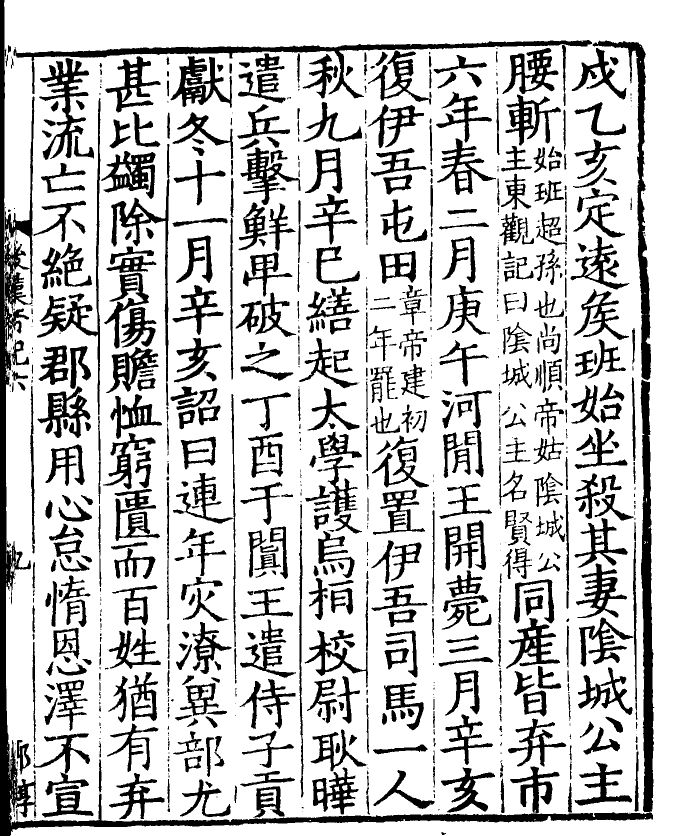 戍乙亥定遠矦班始坐殺其妻陰城公主
腰斬
始班超孫也尚順帝姑陰城公
主東觀記曰陰城公主名賢得
同産皆弃市
六年春二月庚午河閒王開薨三月辛亥
復伊吾屯田
章帝建初
二年罷也
復置伊吾司馬一人
秋九月辛巳繕起太學護烏桓校尉耿曄
遣兵擊鮮卑破之丁酉于闐王遣侍子貢
獻冬十一月辛亥詔曰連年灾潦兾部尤
甚比蠲除實傷贍恤窮匱而百姓猶有弃
業流亡不絶疑郡縣用心怠惰恩澤不宣